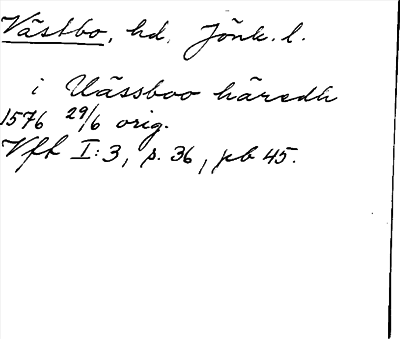 Västbo, hd. Jönk. l.
i Uässboo häredh
1576 29/6 orig.
Vfb I:3, s. 36, pb 45.